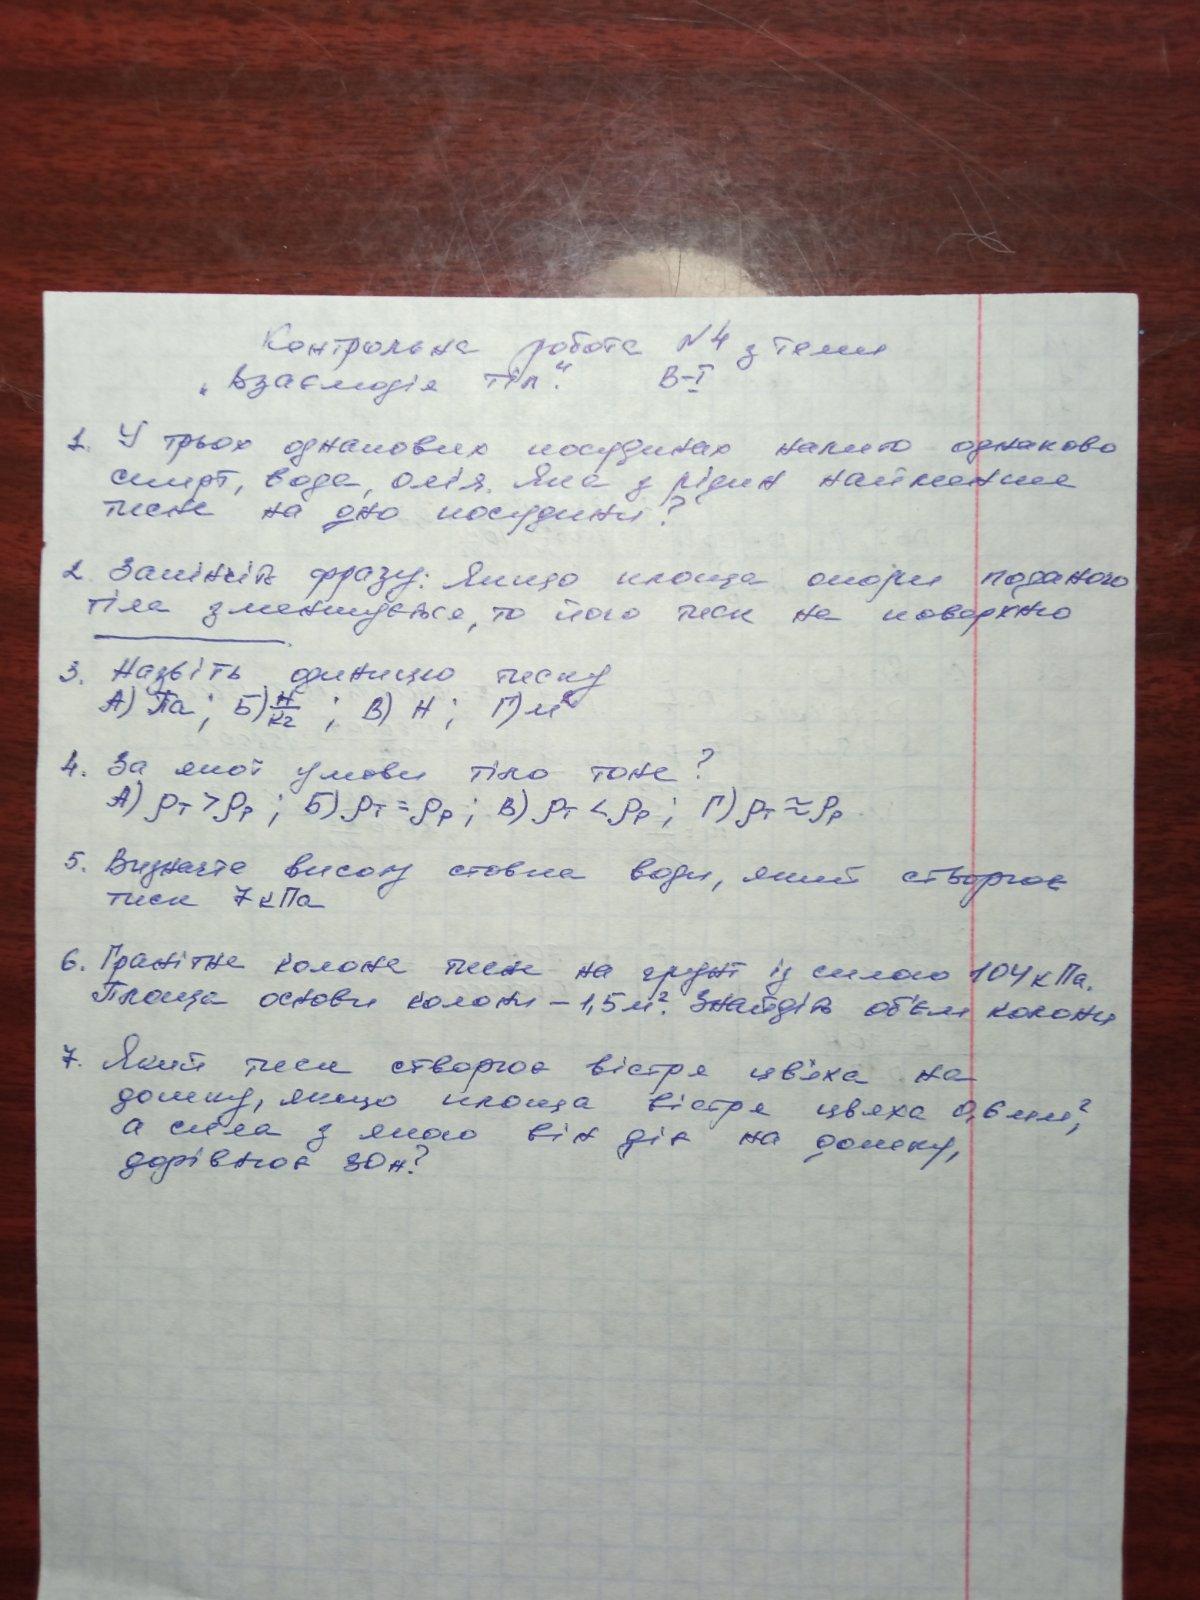 Контрольна робота №4 з теми
"Взаємодія тіл." В-І
1. У трьох однакових посудинах налито однаково
спирт, вода, олія. Яка з рідин найменше
тисне на дно посудини?
2. Закінчіть фразу: Якщо площа опори поданого
тіла зменшується, то його тиск на поверхню
3. Назвіть одиницю тиску
А) Па; Б) Н/кг; В) Н; Г) м²
4. За якої умови тіло тоне?
А) ρт > ρр; Б) ρт = ρр; В) ρт < ρр; Г) ρт ≈ ρр
5. Визначте висоту стовпа води, який створює
тиск 7 кПа
6. Гранітна колона тисне на грунт із силою 104 кПа.
Площа основи колони – 1,5 м². Знайдіть об'єм колони
7. Який тиск створює вістря цвяха на
дошку, якщо площа вістря цвяха 0,6 мм²,
а сила з якою він діє на дошку,
дорівнює 30 н?